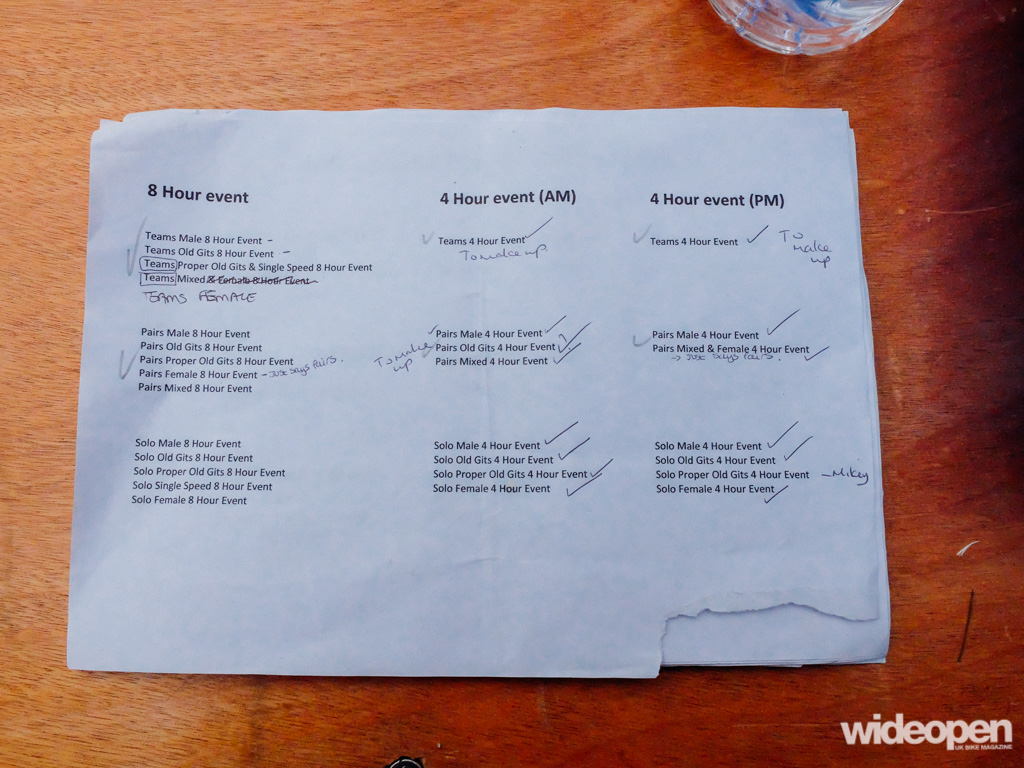 8 Hour event
Teams Male 8 Hour Event –
Teams Old Gits 8 Hour Event –
Teams Proper Old Gits & Single Speed 8 Hour Event
Teams Mixed & Female 8 Hour Event
TEAMS FEMALE
Pairs Male 8 Hour Event
Pairs Old Gits 8 Hour Event
Pairs Proper Old Gits 8 Hour Event
Pairs Female 8 Hour Event – Just says Pairs.
Pairs Mixed 8 Hour Event
Solo Male 8 Hour Event
Solo Old Gits 8 Hour Event
Solo Proper Old Gits 8 Hour Event
Solo Single Speed 8 Hour Event
Solo Female 8 Hour Event
4 Hour event (AM)
Teams 4 Hour Event
To make up
Pairs Male 4 Hour Event
Pairs Old Gits 4 Hour Event ?
Pairs Mixed 4 Hour Event
To make
up
Solo Male 4 Hour Event
Solo Old Gits 4 Hour Event
Solo Proper Old Gits 4 Hour Event
Solo Female 4 Hour Event
4 Hour event (PM)
Teams 4 Hour Event
To
make
up
Pairs Male 4 Hour Event
Pairs Mixed & Female 4 Hour Event
→ Just says Pairs.
Solo Male 4 Hour Event
Solo Old Gits 4 Hour Event
Solo Proper Old Gits 4 Hour Event – Mikey
Solo Female 4 Hour Event
wideopen
UK BIKE MAGAZINE